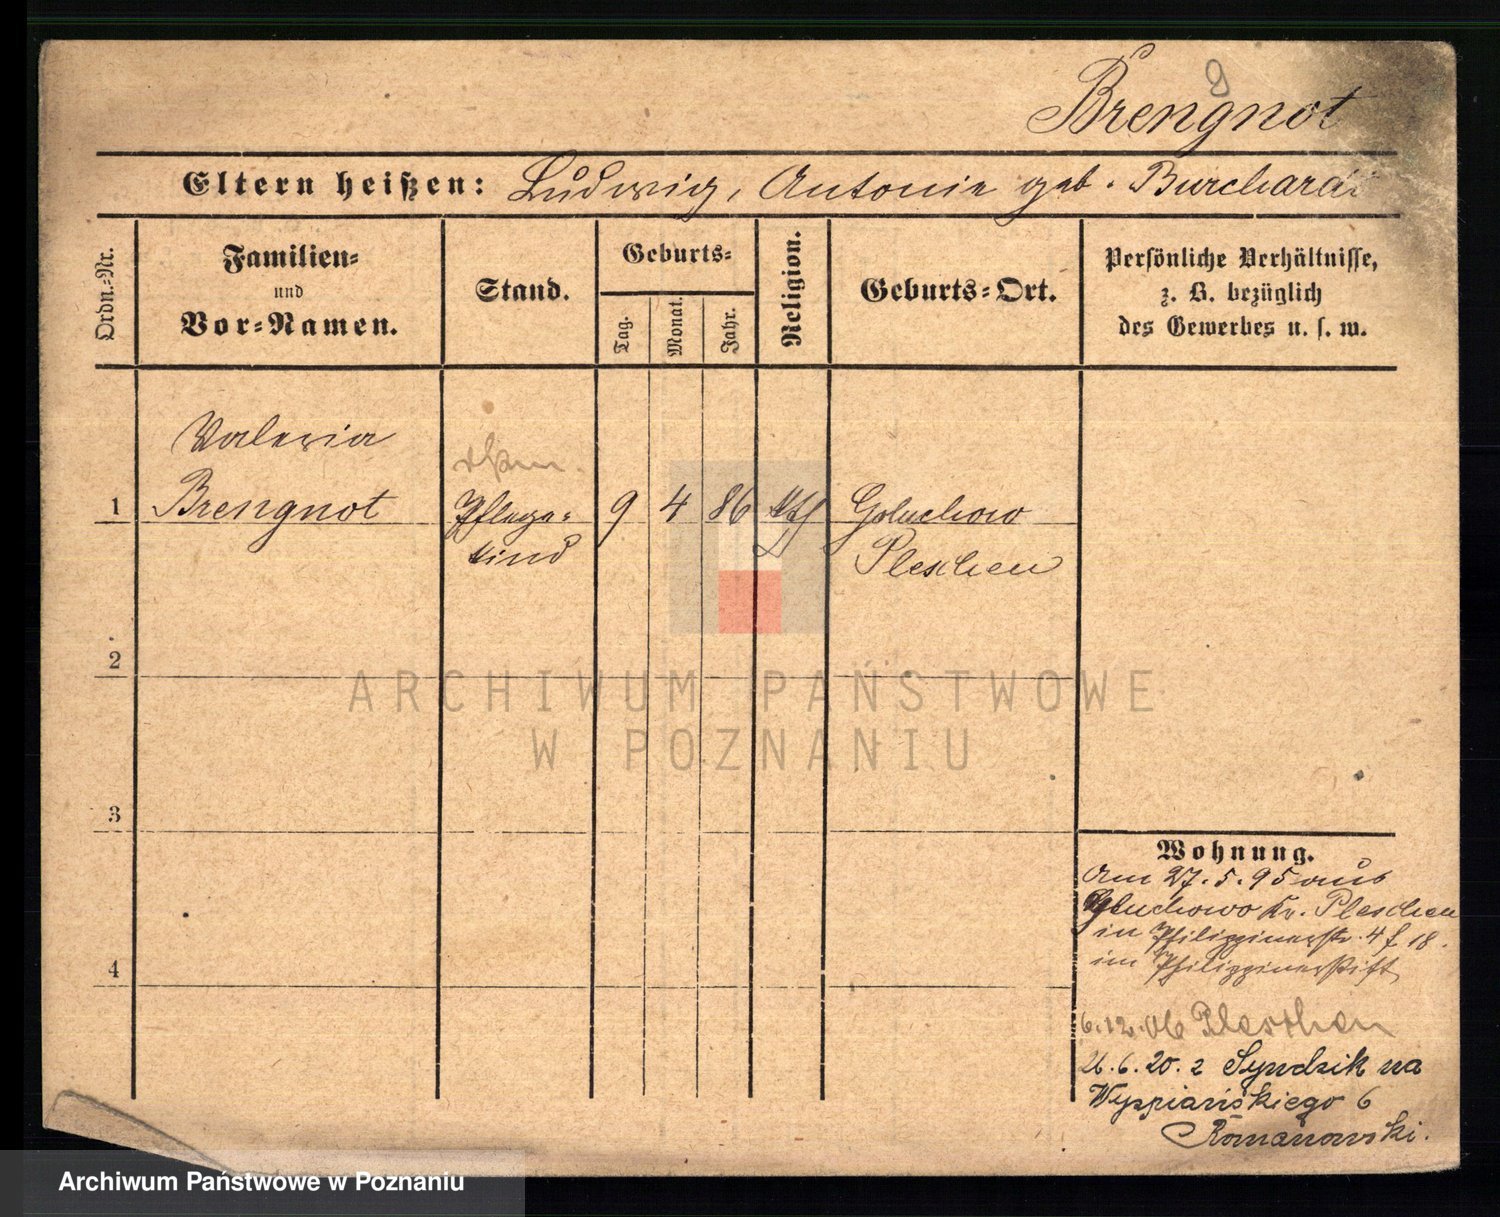 9
Brengnot
Eltern heißen: Ludwig, Antonie geb. Burchardt
Ordn.-Nr.
Familien- und Vor-Namen.
Stand.
Geburts-
Tag.
Monat.
Jahr.
Religion.
Geburts-Ort.
Persönliche Verhältnisse,
z. B. bezüglich
des Gewerbes u. s. w.
Valeria
1 Brengnot Pflege- 9 4 86 kth Goluchow
kind Pleschen
2
3
4
Wohnung.
Am 27.5.95 aus
Goluchowo Kr. Pleschen
in Philippinerstr. 4 f 18.
im Philippinerstift
6.12.06 Pleschen
21.6.20. z Syndzik na
Wyspiańskiego 6
Romanowski.
ARCHIWUM PAŃSTWOWE
W POZNANIU
Archiwum Państwowe w Poznaniu